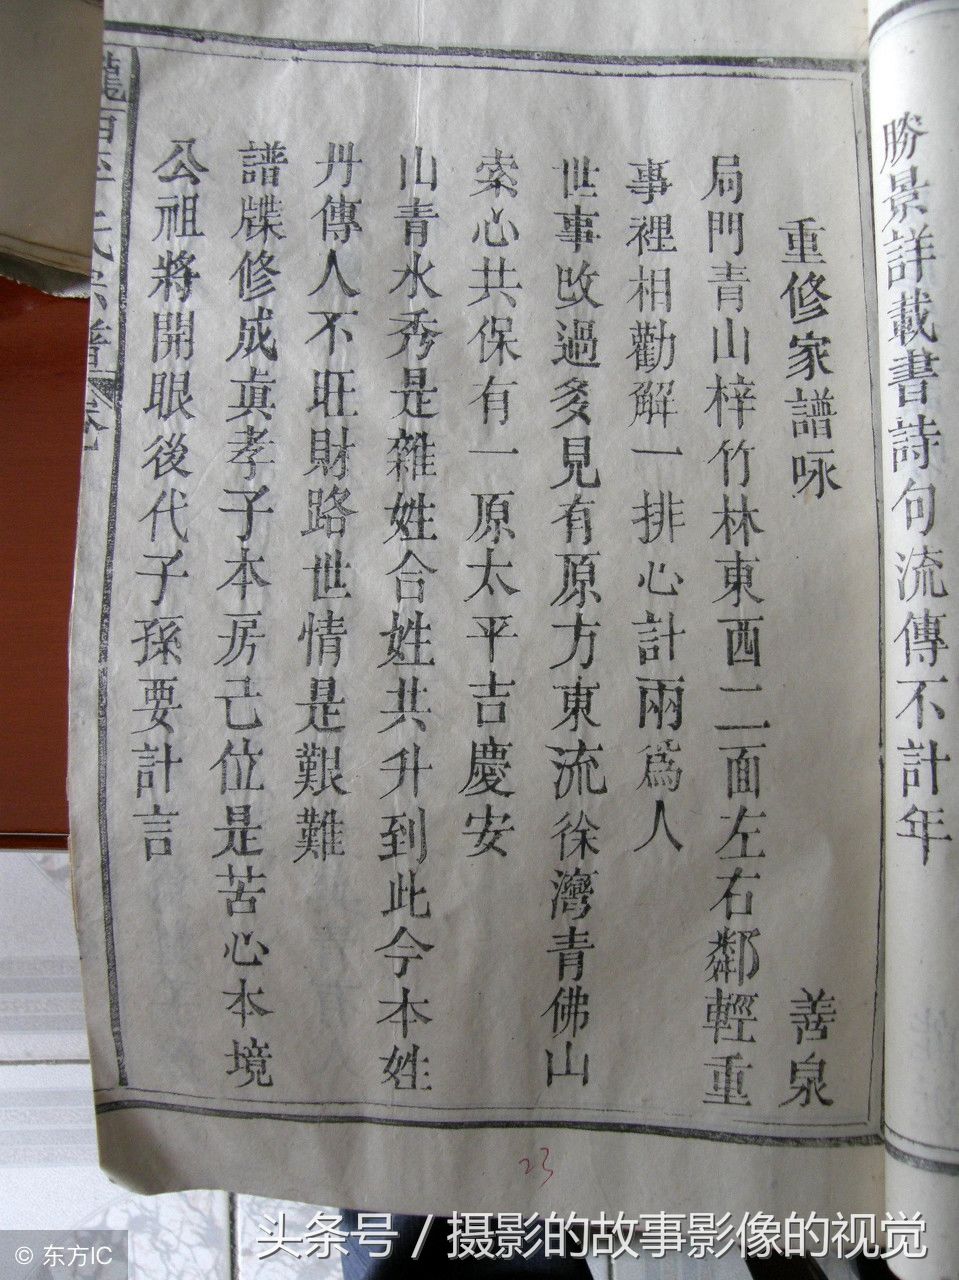 勝景詳載書詩句流傳不計年
重修家譜咏 善泉
局門青山梓竹林東西二面左右鄰輕重
事裡相勸解一排心計兩為人
世事改過多見有原方東流徐灣青佛山
索心共保有一原太平吉慶安
山青水秀是雜姓合姓共升到此今本姓
丹傳人不旺財路世情是艱難
譜牒修成真孝子本房己位是苦心本境
公祖將開眼後代子孫要計言
氏宗譜
23
© 东方IC
头条号 / 摄影的故事影像的视觉